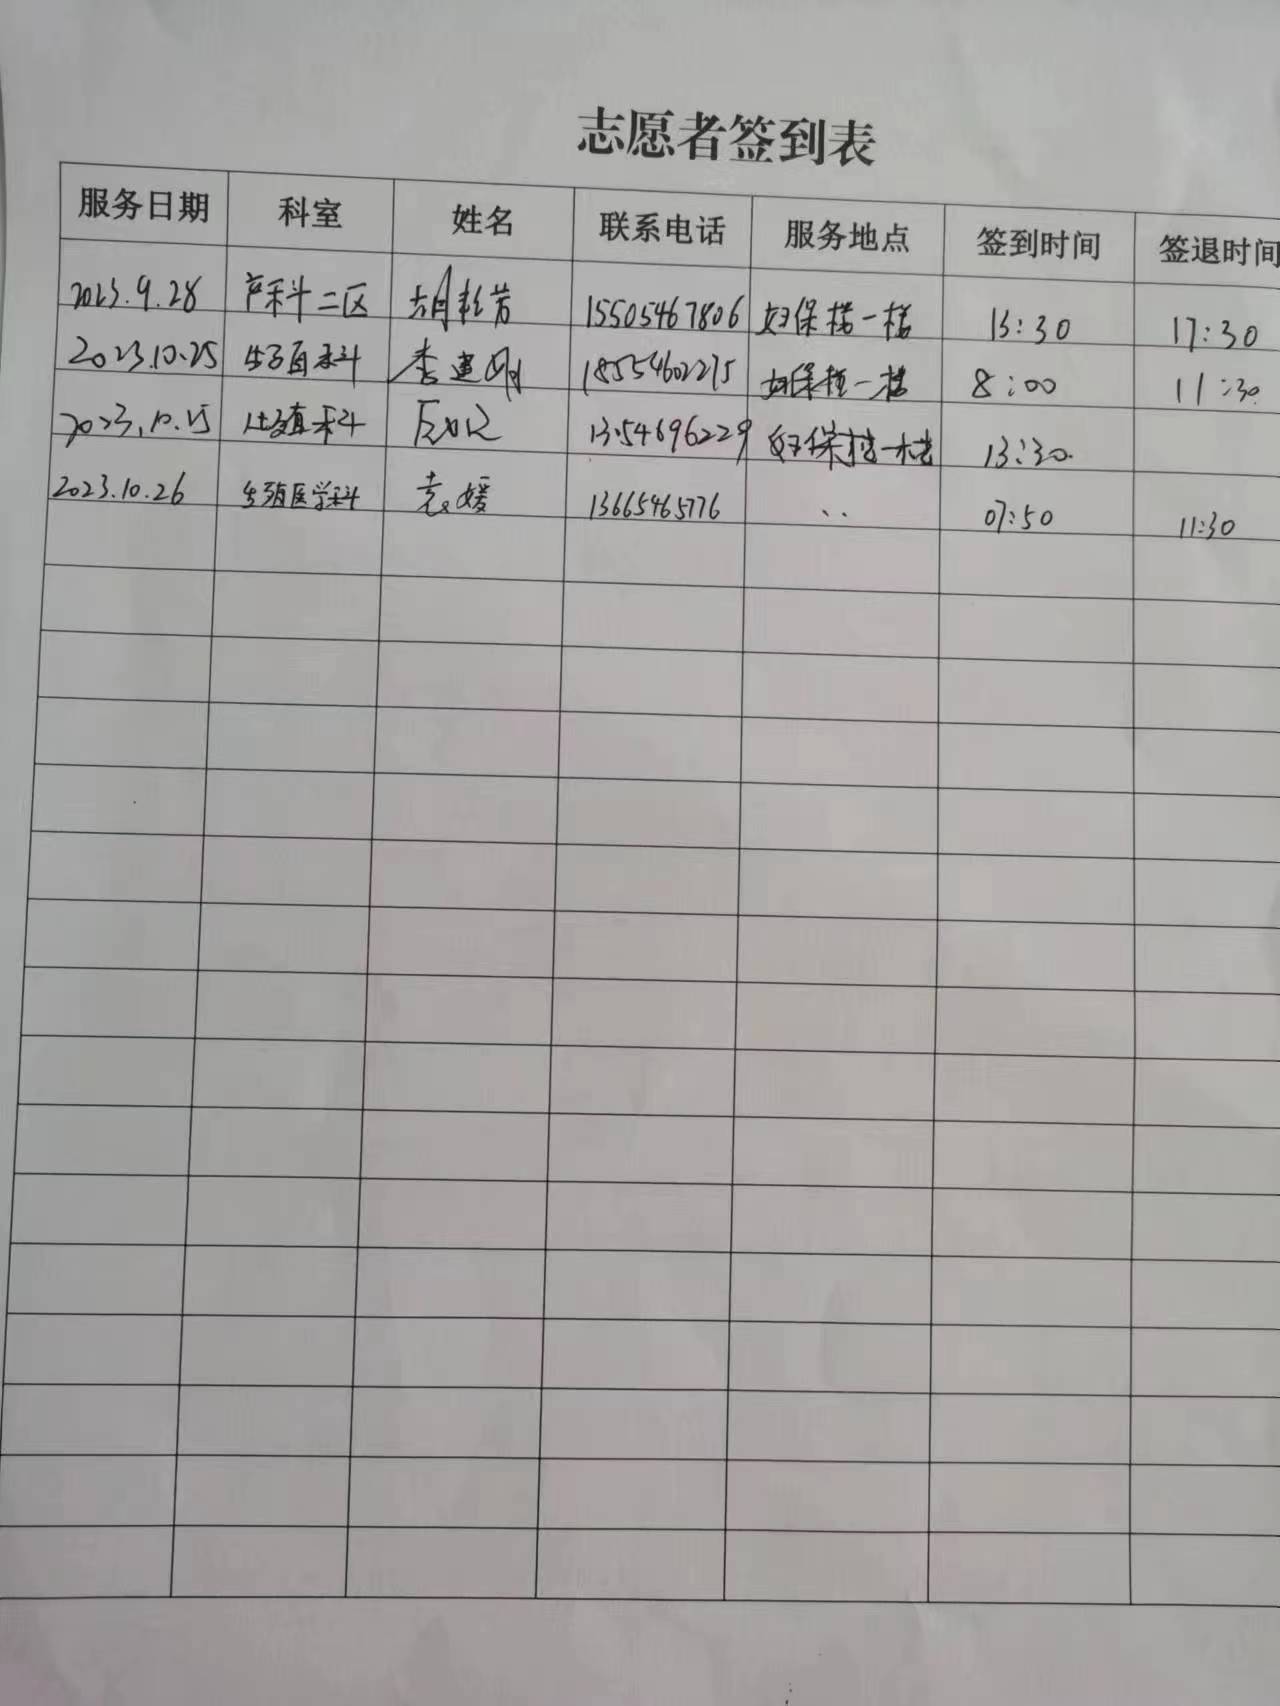 志愿者签到表
服务日期 科室 姓名 联系电话 服务地点 签到时间 签退时间
2023.9.28 产科二区 胡 芳 15505467806 妇保楼一楼 13:30 17:30
2023.10.25 生殖科 李建刚 18554602275 妇保楼一楼 8:00 11:30
2023.10.25 生殖科 妇保楼一楼 13:30
2023.10.26 生殖医学科 袁媛 13665465776 .. 07:50 11:30